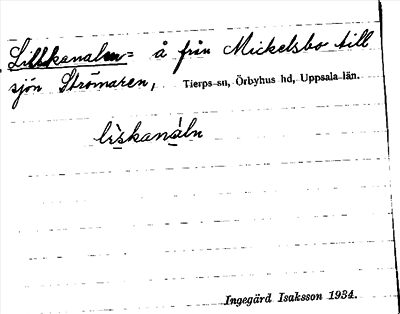 å från Mickelsbo till
sjön Strömaren, Tierps sn, Örbyhus hd, Uppsala län.
Ingegärd Isaksson 1934.